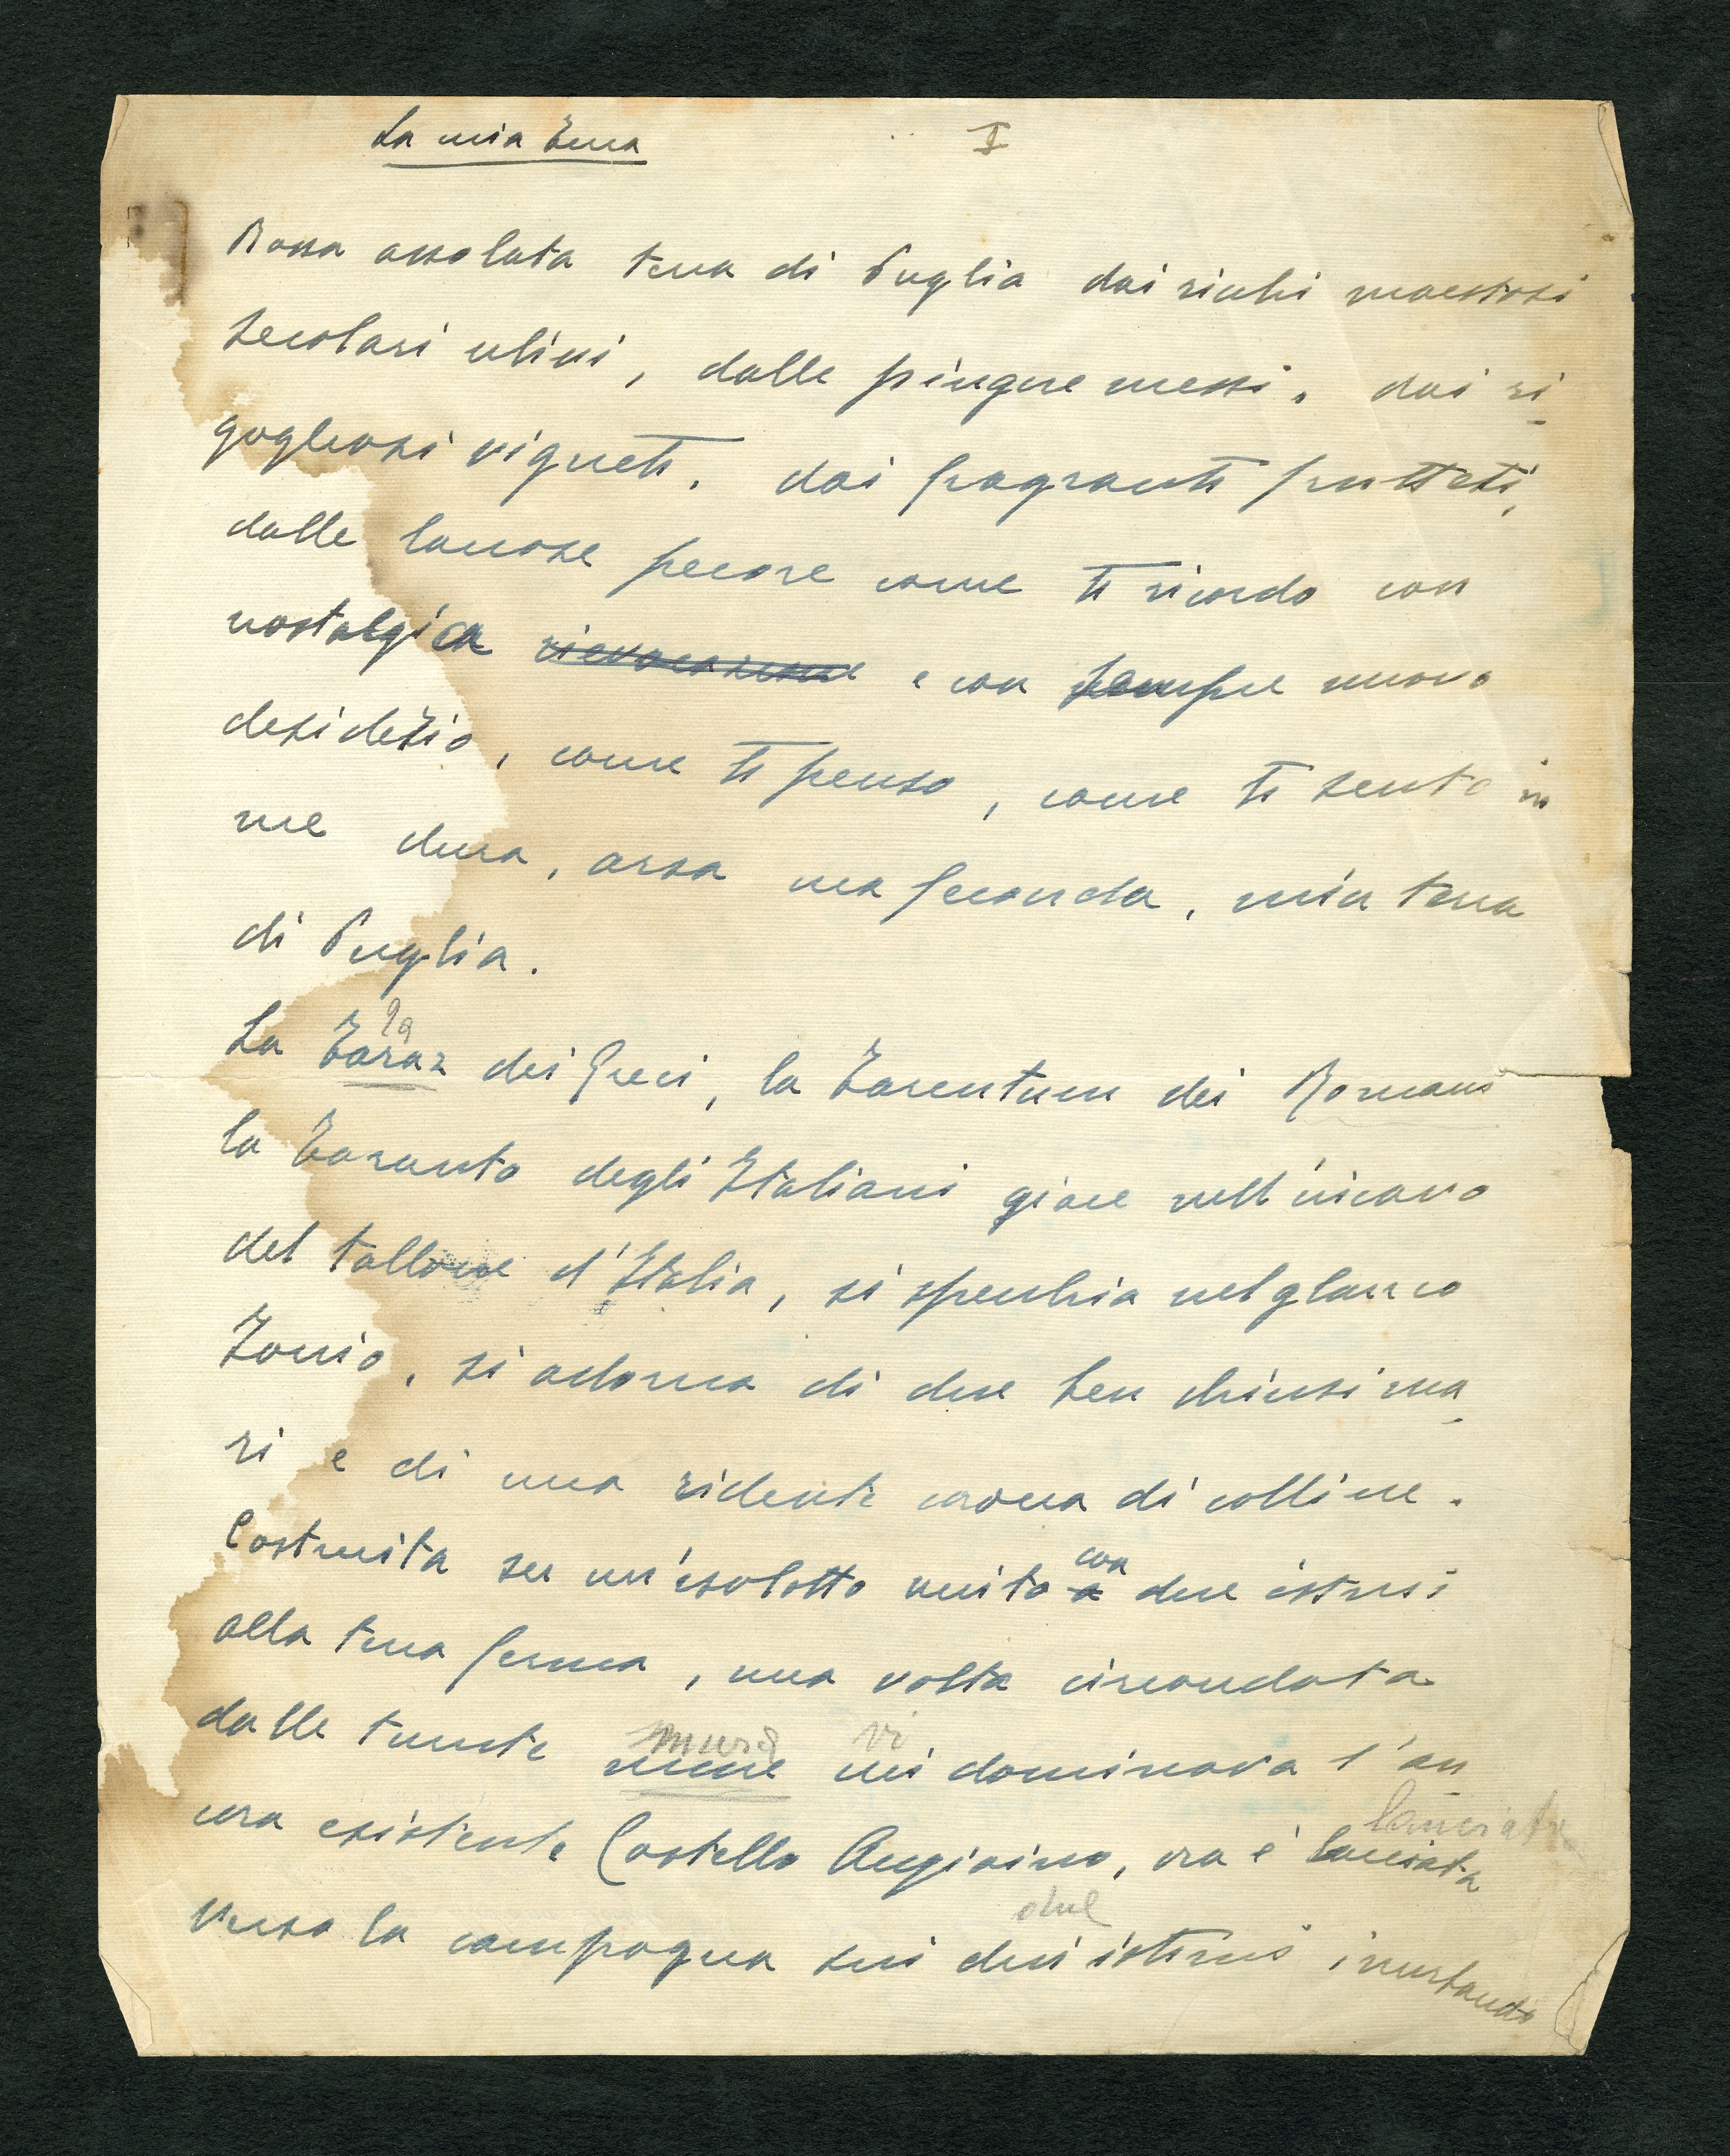 La mia Terra
I
Rossa assolata terra di Puglia dai ricchi maestosi
secolari ulivi, dalle pingue messi, dai ri-
gogliosi vigneti, dai fragranti frutteti,
dalle lanose pecore come ti ricordo con
nostalgica rievocazione e con sempre nuovo
desiderio, come ti penso, come ti sento in
me dura, arsa ma feconda, mia terra
di Puglia.
la
La Taraz dei Greci, la Tarentum dei Romani
la Taranto degli Italiani giace nell'incavo
del tallone d'Italia, si specchia nel glauco
Ionio, si adorna di due ben chiusi ma-
ri e di una ridente corona di colline.
con
Costruita su un'isolotto unito a due istmi
alla terra ferma, una volta circondata
mura vi
dalle turrite mure cui dominava l'an
lanciata
cora esistente Castello Angioino, ora è lanciata
due
verso la campagna sui due istmi inurbando